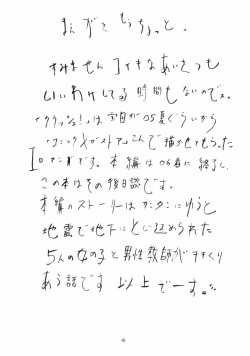 まえがきもうちょっと。
すみませんコイキなあいさつも
いいわけしてる時間もないのでス。
「クラッシュ!」は 05夏ぐらいから
コミックメガストアさんで描かせてもらった
エロマンガです。本編は06春に終了し、
この本はその後日談です。
本編のストーリーはカンタンにゆうと
地震で地下にとじ込められた
5人の女の子と男性教師がチチくり
あう話です 以上でーす。